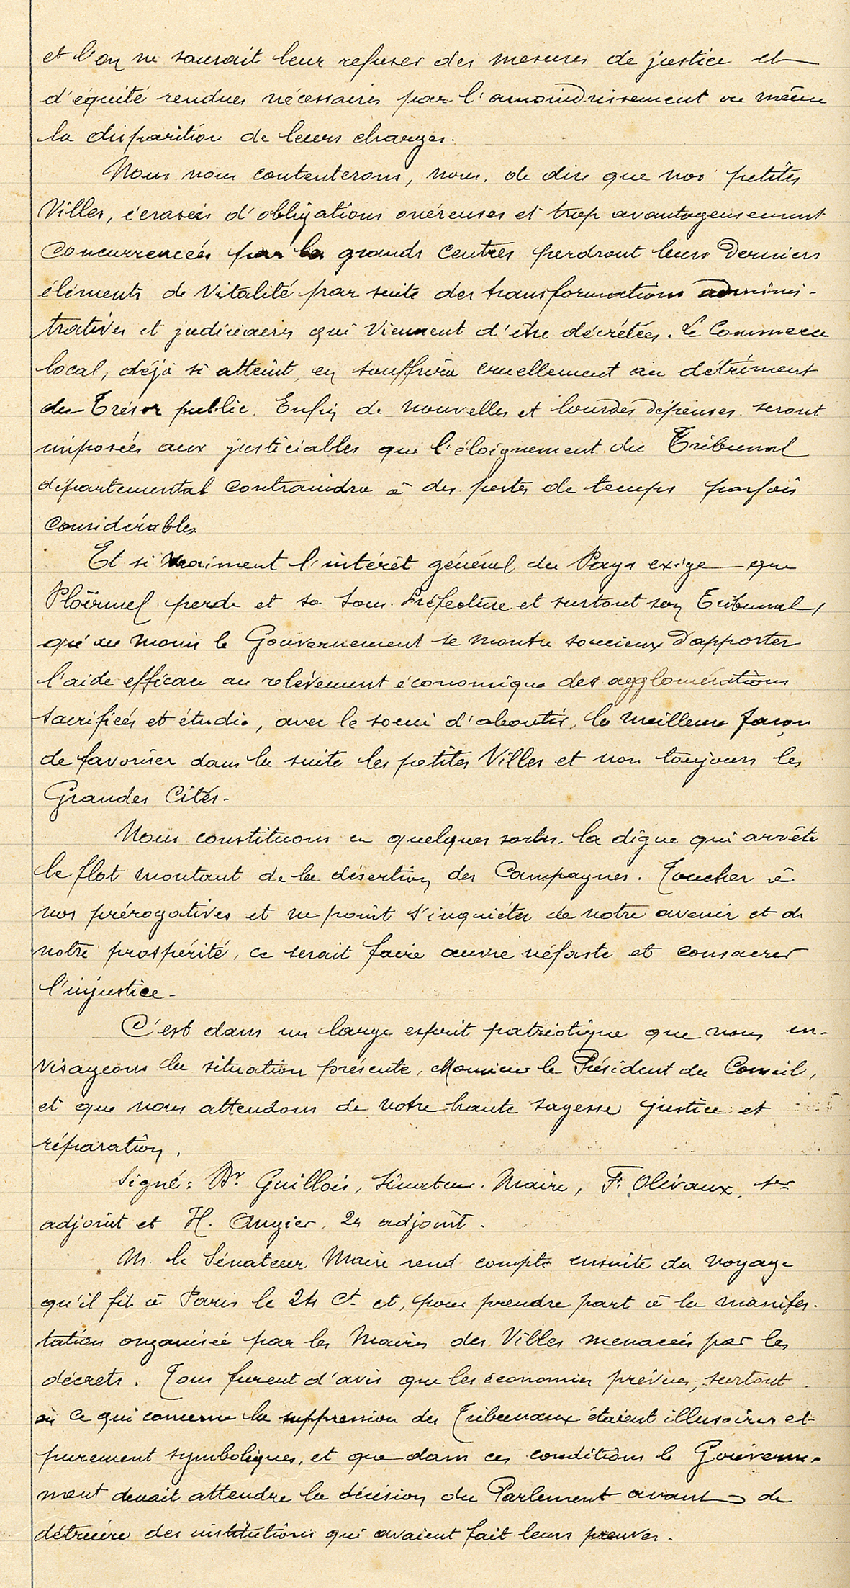 et l'on ne saurait leur refuser des mesures de justice et
d'équité rendues nécessaires par l'amoindrissement ou même
la disparition de leurs charges.
Nous nous contenterons, nous, de dire que nos petites
Villes, écrasées d'obligations onéreuses et trop avantageusement
concurrencées par les grands centres perdront leurs derniers
éléments de Vitalité par suite des transformations adminis-
tratives et judiciaires qui viennent d'être décrétées. Le Commerce
local, déjà si atteint, en souffrira cruellement au détriment
du Trésor public. Enfin de nouvelles et lourdes dépenses seront
imposées aux justiciables que l'éloignement du Tribunal
départemental contraindra à des pertes de temps parfois
considérables
Et si vraiment l'intérêt général du Pays exige que
Ploërmel perde et sa Sous Préfecture et surtout son Tribunal,
qu'au moins le Gouvernement se montre soucieux d'apporter
l'aide efficace au relèvement économique des agglomérations
sacrifiées et étudie, avec le souci d'aboutir, la meilleure façon
de favoriser dans la suite les petites Villes et non toujours les
Grandes Cités.
Nous constituons en quelques sortes la digue qui arrête
le flot montant de la désertion des Campagnes. Toucher à
nos prérogatives et ne point s'inquiéter de notre avenir et de
notre prospérité, ce serait faire œuvre néfaste et consacrer
l'injustice.
C'est dans un large esprit patriotique que nous en-
visageons la situation présente, Monsieur le Président du Conseil,
et que nous attendons de votre haute sagesse justice et
réparation.
Signé: Dr Guillois, Sénateur-Maire, F. Olivaux, 1er
adjoint et H. Angier, 2e adjoint.
M. le Sénateur Maire rend compte ensuite du voyage
qu'il fit à Paris le 24 Ct et, pour prendre part à la manifes-
tation organisée par les Maires des Villes menacées par les
décrets. Tous furent d'avis que les économies prévues, surtout
en ce qui concerne la suppression des Tribunaux étaient illusoires et
purement symboliques, et que dans ces conditions le Gouverne-
ment devait attendre la décision du Parlement avant de
détruire des institutions qui avaient fait leurs preuves.